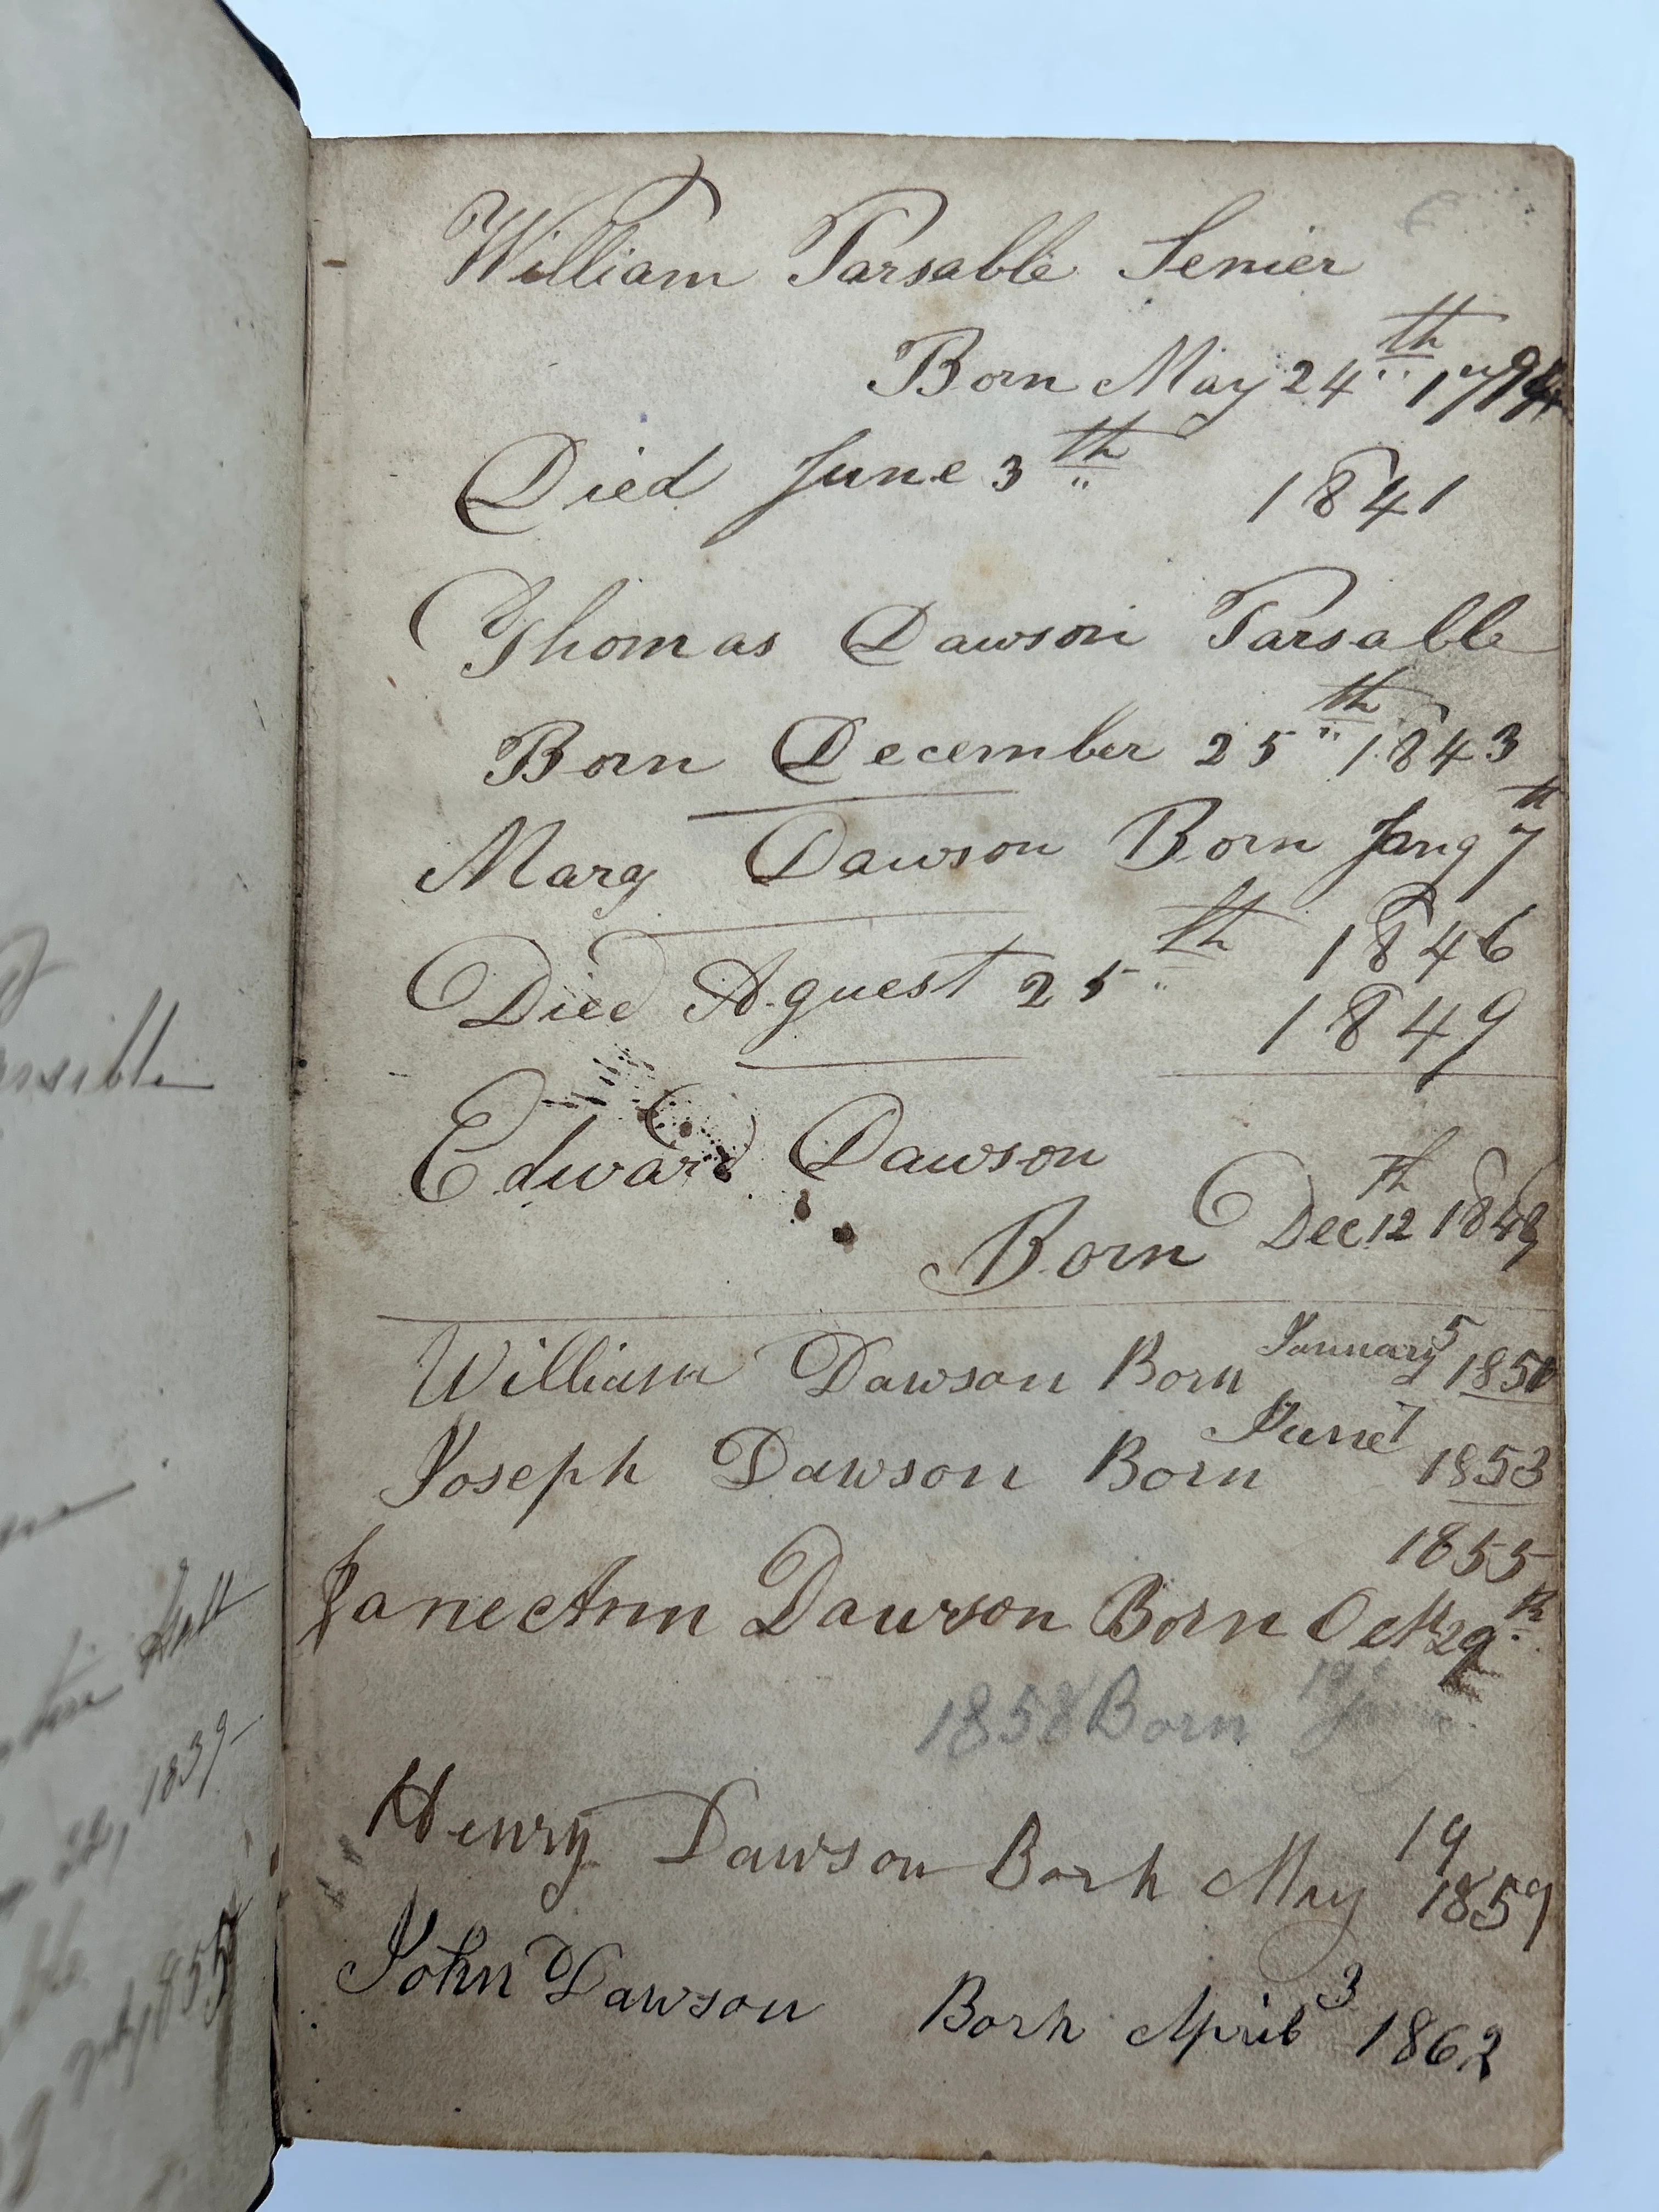 William Tarsable Senier
Born May 24th 1794
Died June 3th 1841
Thomas Dawson Tarsable
Born December 25th 1843
Mary Dawson Born Jany 7th
1846
Died Aguest 25th
1849
Edward Dawson
Born Dec 12th 1848
William Dawson Born January 5 1850
Joseph Dawson Born June 7 1853
1855
Jane Ann Dawson Born Oct 29th
1858 Born
Henry Dawson Born May 19
1859
John Dawson Born April 3 1862
1839
1855